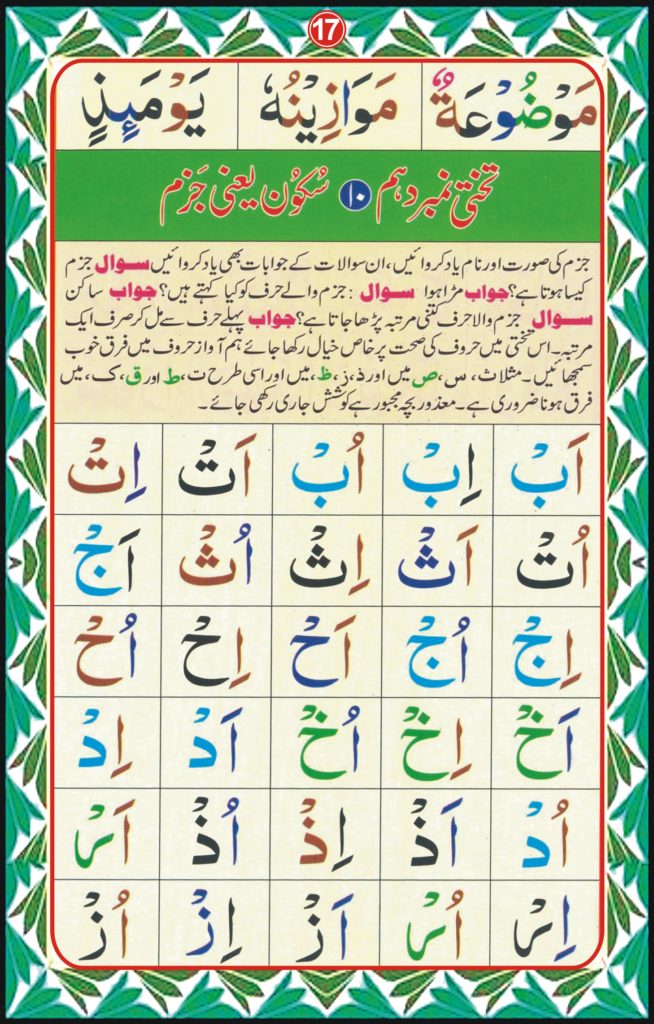 17
مَوْضُوْعَةٌ مَوَازِيْنُهٗ يَوْمَئِذٍ
تختی نمبر دہم ۱۰ سُکُوْن یعنی جَزم
جزم کی صورت اور نام یاد کروائیں، ان سوالات کے جوابات بھی یاد کروائیں سوال جزم
کیسا ہوتا ہے؟ جواب مڑا ہوا سوال : جزم والے حرف کو کیا کہتے ہیں؟ جواب ساکن
سوال جزم والا حرف کتنی مرتبہ پڑھا جاتا ہے؟ جواب پہلے حرف سے مل کر صرف ایک
مرتبہ۔ اس تختی میں حروف کی صحت پر خاص خیال رکھا جائے ہم آواز حروف میں فرق خوب
سمجھائیں۔ مثلا ث، س، ص میں اور ذ، ز، ظ، میں اور اسی طرح ت، ط اور ق، ک، میں
فرق ہونا ضروری ہے۔ معذور بچہ مجبور ہے کوشش جاری رکھی جائے۔
اَبْ اِبْ اُبْ اَتْ اِتْ
اُتْ اَثْ اِثْ اُثْ اَجْ
اِجْ اُجْ اَحْ اِحْ اُحْ
اَخْ اِخْ اُخْ اَدْ اِدْ
اُدْ اَذْ اِذْ اُذْ اَرْ
اِرْ اُرْ اَزْ اِزْ اُزْ